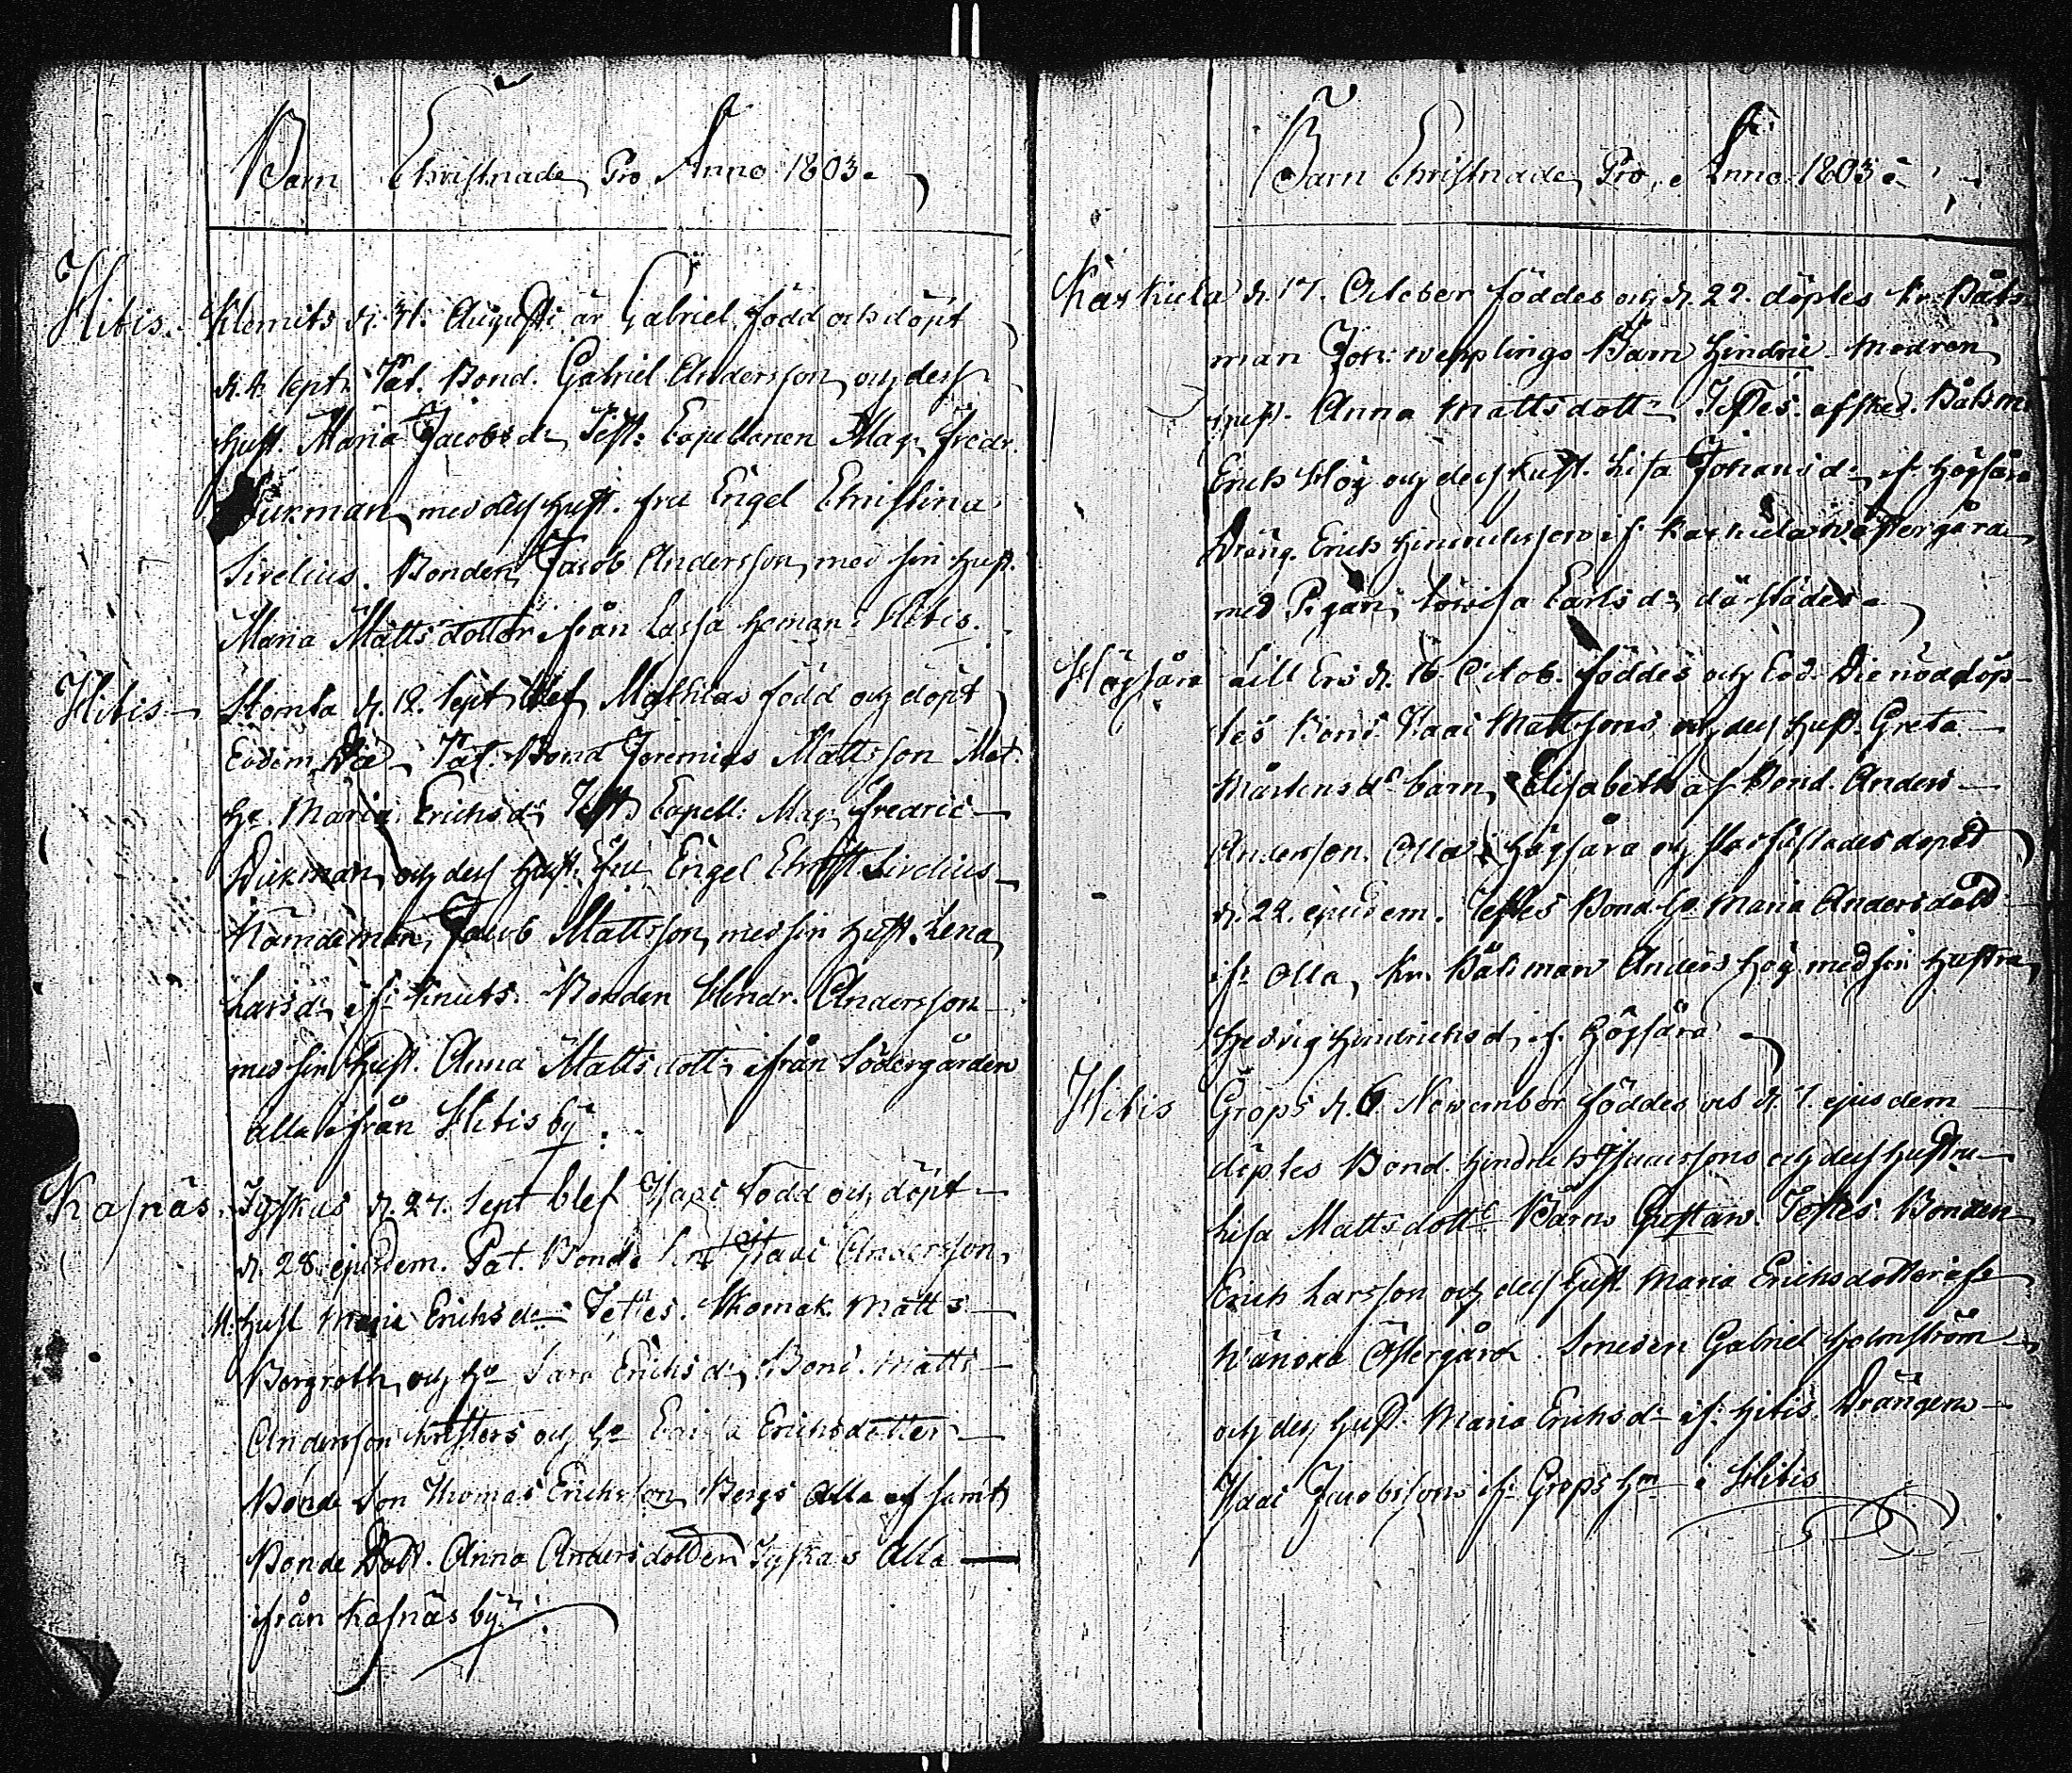 Barn Christnade Pro Anno 1803.
Hitis. Klemets d. 31. Augusti är Gabriel född och döpt
d. 4. Sept. Pat. Bond. Gabriel Andersson och dess
hust. Maria Jacobs dr Test: Capellanen Mag. Fredr.
med dess hust. fru Engel Christina
Sirelius. Bonden Jacob Andersson med sin hust.
Maria Mattsdotter ifrån Lassa heman i Hitis.
Hitis Stomta d. 12. Sept blef Mathias född och döpt
Eodem Die Pat. Bond Jeremias Mattsson Mat.
He. Maria Erichs dr Test. Capell: Mag. Fredric
Dickman och dess hust. fru Engel Christ. Sirelius
Nämdeman Jacob Mattsson med sin hust. Lena
Larsdr ifr Knuts. Bonden Hendr. Andersson
med sin hust. Anna Mattsdottr ifrån Södergården
alla ifrån Hitis by.
Kasnäs Tyskas d. 27. Sept blef Isaac född och döpt
d. 28 ejusdem. Pat. Bonde Isaac Andersson
M: hust Maria Erichs dr Testes. Skomak. Matts
Bergroth och he Sara Erichs dr, Bond. Matts
Andersson Christers och he Erichsdotter
Bonde Son Thomas Erichsson Bergs samt
Bonde Dott. Anna Andersdotter Tyskas Alla
ifrån Kasnäs by.
Barn Christnade Pro Anno 1803
Kärkula d. 17. October föddes och d. 22. döptes Kr. Båts-
man Joh: Wepplings Barn Hindric Modren
hust. Anna Mattsdottr Testes. afsked. Båtsm.
Erich Hög och dess hust. Lisa Johansdr if. Högsåra
Dräng. Erich Hinrichsson if. Kärkula Wästergård
med Pigan Lovisa Carls dr därstädes.
Högsåra Lill Ers d. 16. Octob. föddes och Eod. Die nöddöp-
tes Bond. Isaac Mattssons och dess hust. Greta
Mårtensdr barn, Elisabeth af Bond. Anders
Andersson. Olla i Högsåra och stadfästades döpet
d. 22. ejusdem. Testes Bond. He Maria Andersdott
ifr Olla, Kr. Båtsman Anders Hög med sin hustru
Hedvig Hindrichsd if. Högsåra
Hitis Grops d. 6. November föddes och d. 7. ejusdem
döptes Bond. Hindrich Isaacssons och dess hustru
Lisa Mattsdottr Barn Gustaw. Testes. Bonden
Erich Larsson och dess hust. Maria Erichsdotter ifr
Wänoxa Östergård. Smeden Gabriel Holmström
och dess hust. Maria Erichsdr if. Hitis. Drängen
Isaac Jacobsson ifr Grops Hn i Hitis